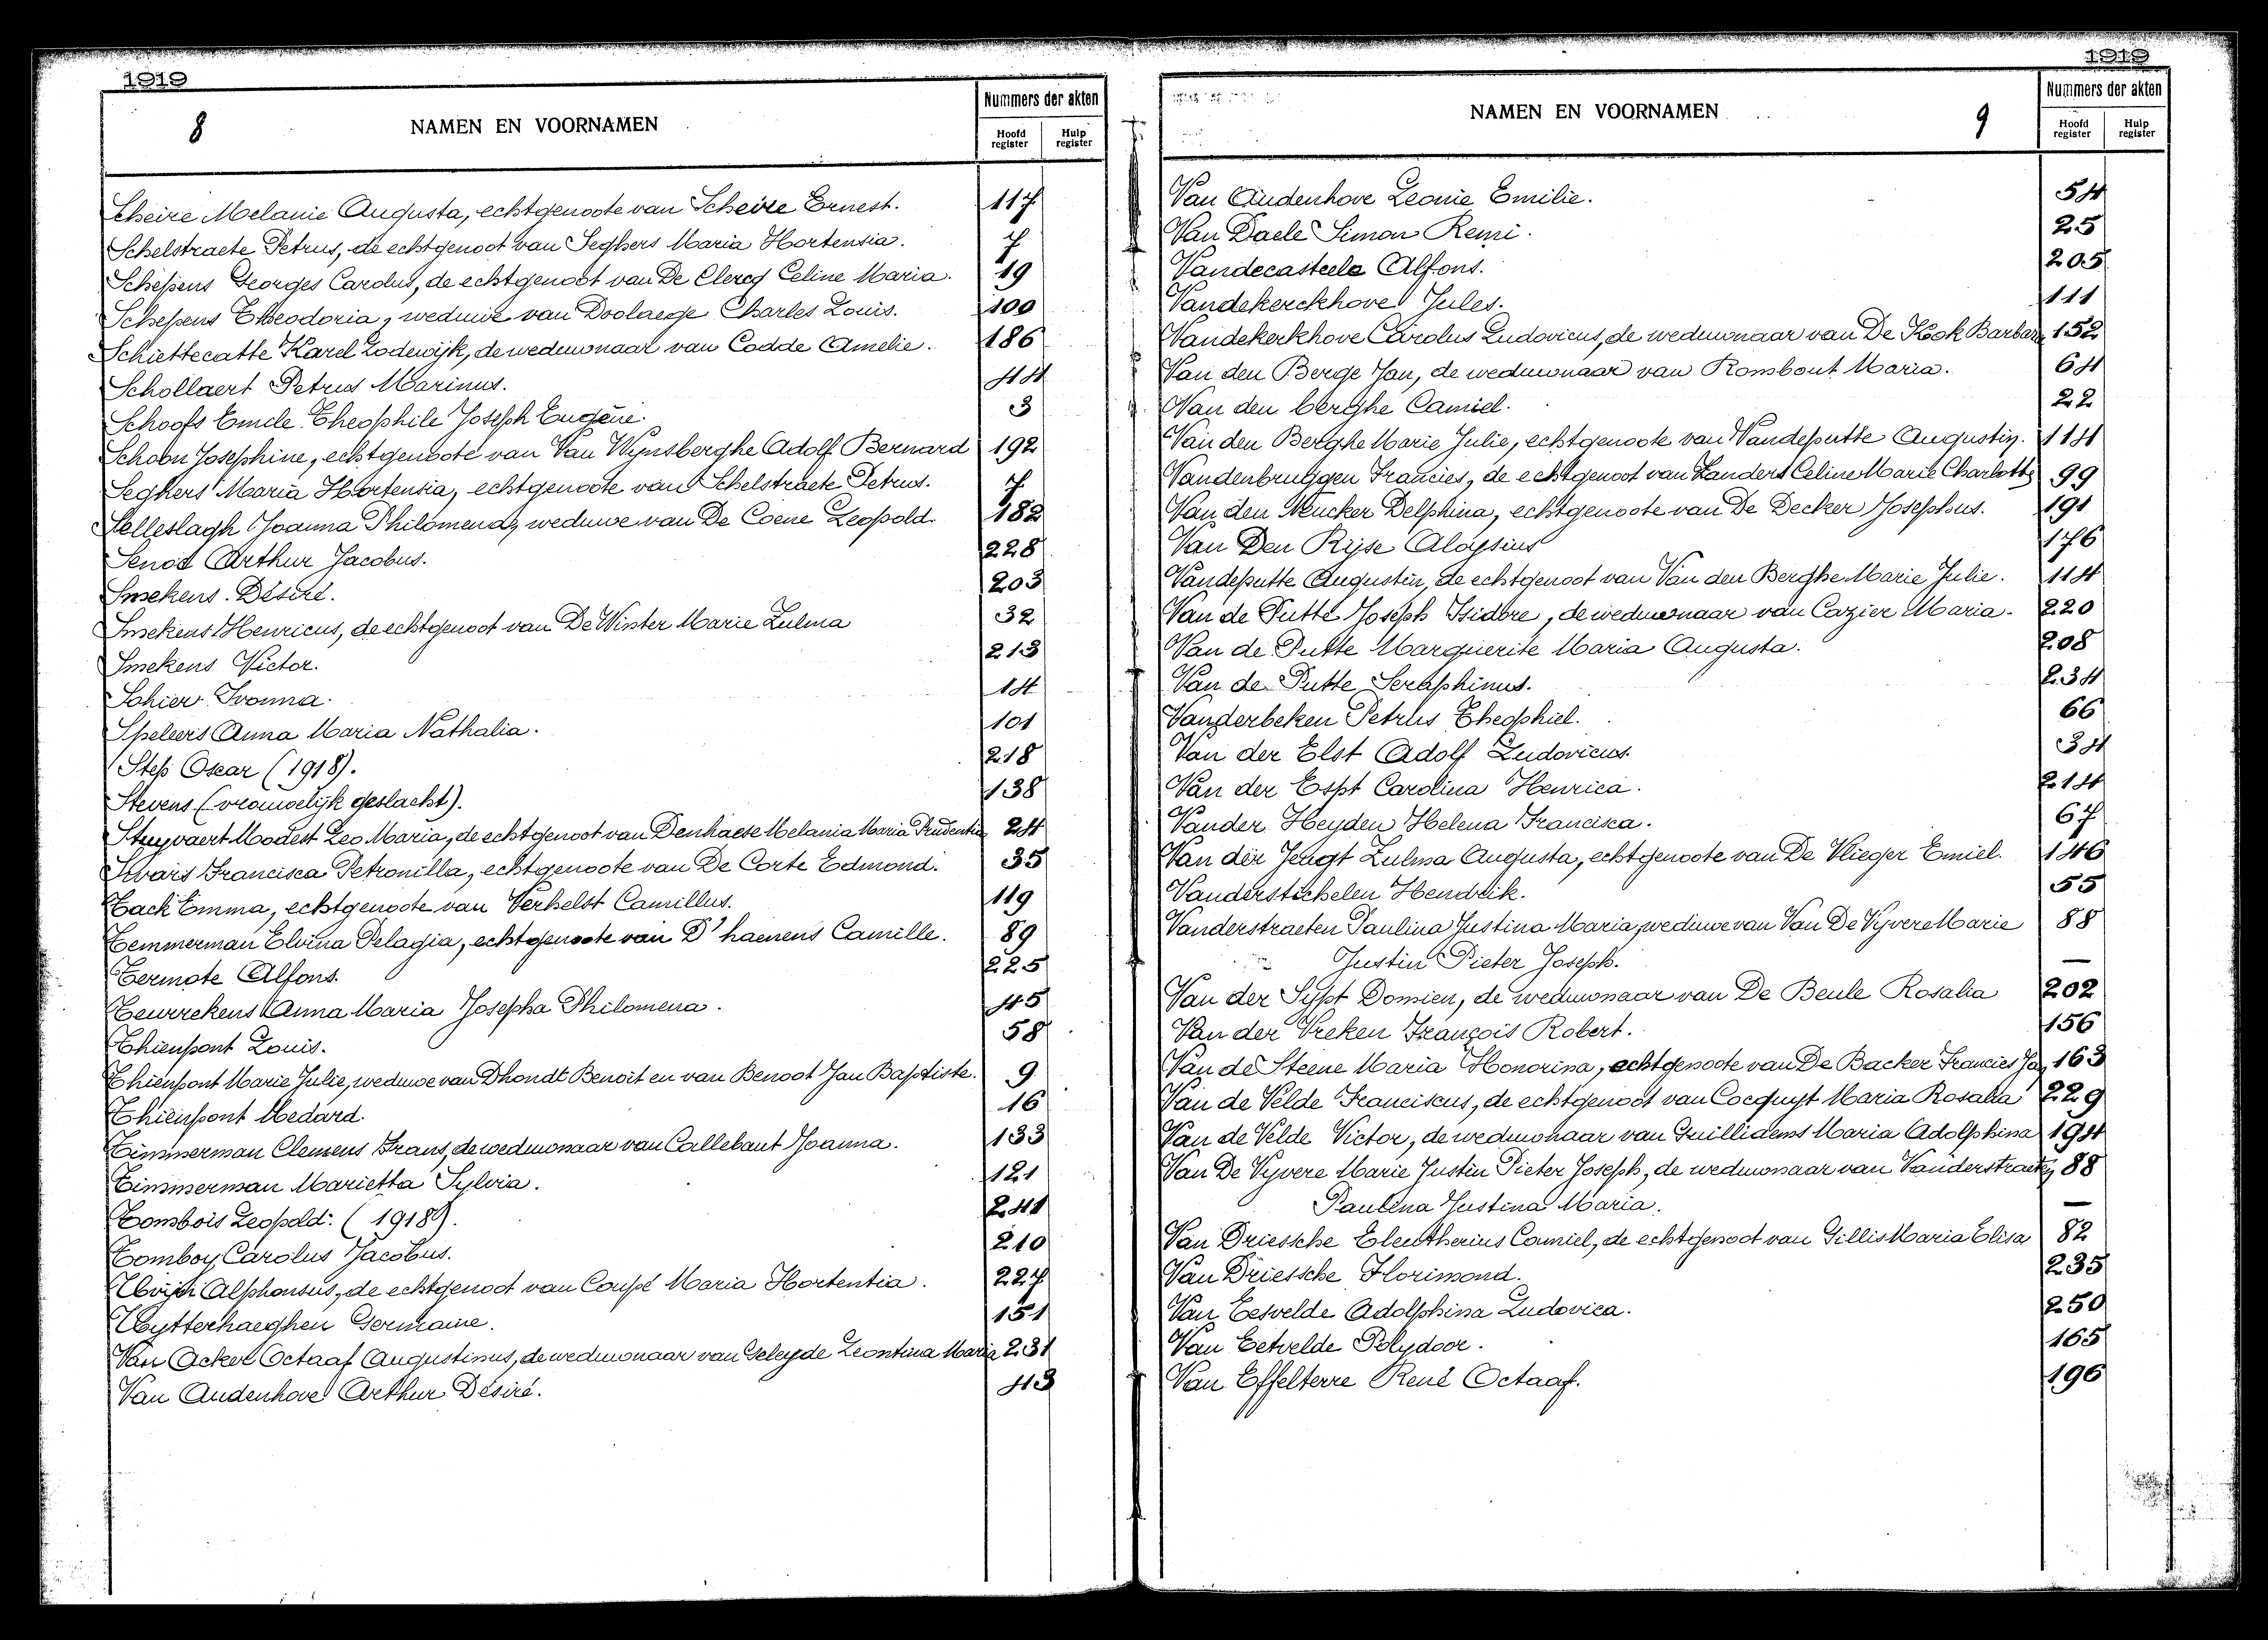 1919
8
NAMEN EN VOORNAMEN
Nummers der akten
Hoofd register
Hulp register
Scheire Melanie Augusta, echtgenoote van Scheire Ernest. 117
Schelstraete Petrus, de echtgenoot van Seghers Maria Hortensia. 7
Schepens Georges Carolus, de echtgenoot van De Clercq Celine Maria. 19
Schepens Theodoria, weduwe van Doolaege Charles Louis. 100
Schiettecatte Karel Lodewijk, de weduwnaar van Codde Amelie. 186
Schollaert Petrus Marinus. 44
Schoofs Emile Theophile Joseph Eugène. 3
Schoon Josephine, echtgenoote van Van Wynsberghe Adolf Bernard 192
Seghers Maria Hortensia, echtgenoote van Schelstraete Petrus. 7
Selleslagh Joanna Philomena, weduwe van De Coene Leopold. 182
Senod Arthur Jacobus. 228
Smekens Désiré. 203
Smekens Henricus, de echtgenoot van De Winter Marie Zulma 32
Smekens Victor. 213
Sohier Ivonna. 14
Speleers Anna Maria Nathalia. 101
Step Oscar (1918). 218
Stevens (vrouwelijk geslacht). 138
Stuyvaert Modest Leo Maria, de echtgenoot van Denhaese Melania Maria Prudentia 24
Francisca Petronilla, echtgenoote van De Corte Edmond. 35
Tack Emma, echtgenoote van Verhelst Camillus. 119
Temmerman Elvina Pelagia, echtgenoote van D'haenens Camille. 89
Termote Alfons. 225
Teurrekens Anna Maria Josepha Philomena. 45
Thienpont Louis. 58
Thienpont Marie Julie, weduwe van Dhondt Benoit en van Benoot Jan Baptiste. 9
Thienpont Medard. 16
Timmerman Clemens Frans, de weduwnaar van Callebaut Joanna. 133
Timmerman Marietta Sylvia. 121
Tombois Leopold. (1918). 241
Tomboy Carolus Jacobus. 210
Alphonsus, de echtgenoot van Coupé Maria Hortentia. 227
Uytterhaeghen Germaine. 151
Van Acker Octaaf Augustinus, de weduwnaar van Geleyde Leontina Maria 231
Van Audenhove Arthur Désiré. 43
1919
NAMEN EN VOORNAMEN
9
Nummers der akten
Hoofd register
Hulp register
Van Audenhove Leonie Emilie. 54
Van Daele Simon Remi. 25
Vandecasteele Alfons. 205
Vandekerckhove Jules. 111
Vandekerkhove Carolus Ludovicus, de weduwnaar van De Kook Barbara 152
Van den Berge Jan, de weduwnaar van Rombout Maria. 64
Van den berghe Camiel. 22
Van den Berghe Marie Julie, echtgenoote van Vandeputte Augustin. 114
Vandenbruggen Francies, de echtgenoot van Landers Celine Marie Charlotte 99
Van den Neucker Delphina, echtgenoote van De Decker Josephus. 191
Van Den Ryse Aloysius 176
Vandeputte Augustin, de echtgenoot van Van den Berghe Marie Julie. 114
Van de Putte Joseph Isidore, de weduwnaar van Cazier Maria. 220
Van de Putte Marguerite Maria Augusta. 208
Van de Putte Seraphinus. 234
Vanderbeken Petrus Theophiel. 66
Van der Elst Adolf Ludovicus. 34
Van der Espt Carolina Henrica. 214
Vander Heyden Helena Francisca. 67
Van der Jeugt Zulma Augusta, echtgenoote van De Vlieger Emiel. 146
Vanderstichelen Hendrik. 55
Vanderstraeten Paulina Justina Maria, weduwe van Van De Vyvere Marie 88
Justin Pieter Joseph. —
Van der Sypt Domien, de weduwnaar van De Beule Rosalia 202
Van der Vreken François Robert. 156
Van de Steene Maria Honorina, echtgenoote van De Backer Francies Jan 163
Van de Velde Franciscus, de echtgenoot van Cocquyt Maria Rosalia 229
Van de Velde Victor, de weduwnaar van Guillidems Maria Adolphina 194
Van De Vyvere Marie Justin Pieter Joseph, de weduwnaar van Vanderstraeten 88
Paulina Justina Maria. —
Van Driessche Eleutherius Camiel, de echtgenoot van Gillis Maria Elisa 82
Van Driessche Florimond. 235
Van Eesvelde Adolphina Ludovica. 250
Van Eetvelde Polydoor. 165
Van Effelterre René Octaaf. 196